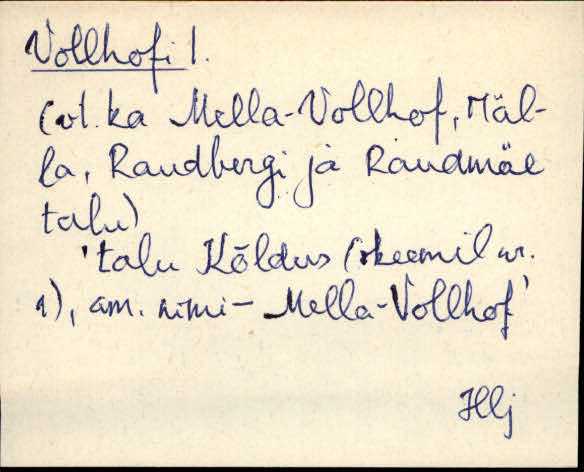 Vollhofi l.
(vt. ka Mella-Vollhof, Mäl-
la, Raudbergi ja Raudmäe
talu)
'talu Kõldus (skeemil nr.
1), am. nimi – Mella-Vollhof'
Hlj